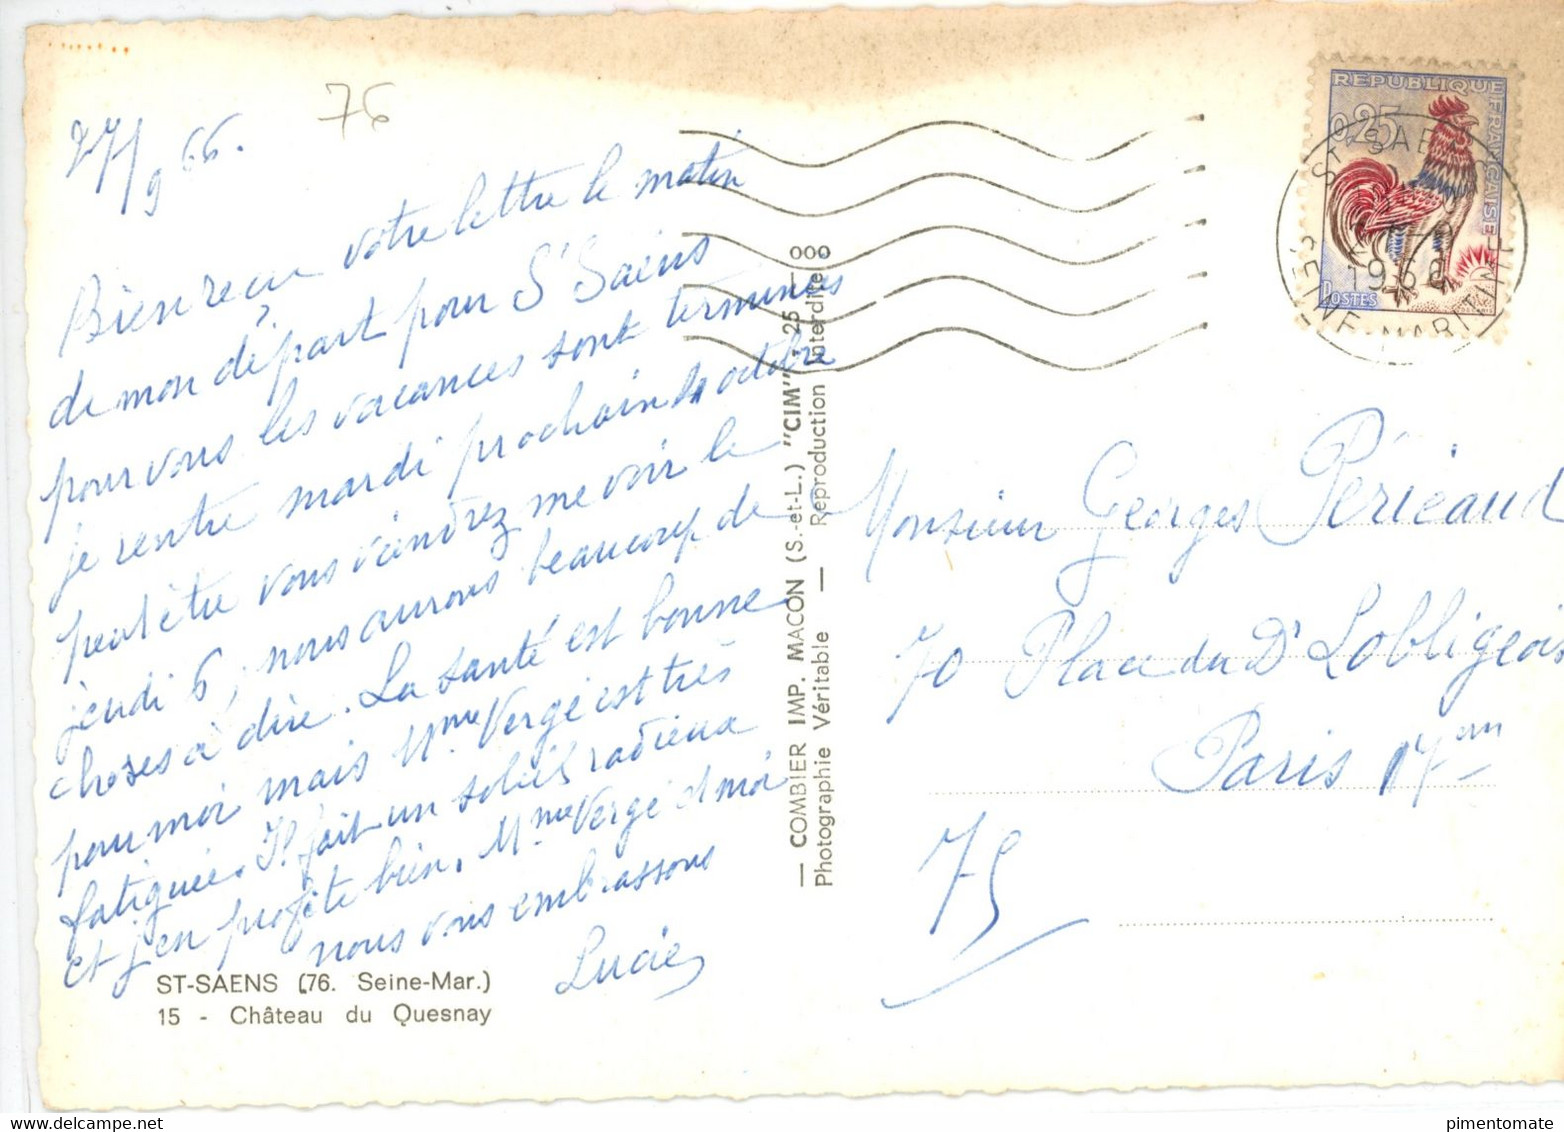 76
27/9 66.
Bien reçu votre lettre le matin
de mon départ pour St Saëns
pour vous les vacances sont terminées
je rentre mardi prochain 4 octobre
peut être vous viendrez me voir le
jeudi 6, nous aurons beaucoup de
choses à dire. La santé est bonne
pour moi mais Mme Vergé est très
fatiguée. Il fait un soleil radieux
et j'en profite bien. Mme Vergé et moi
nous vous embrassons
Lucie
ST-SAENS (76. Seine-Mar.)
15 - Château du Quesnay
— COMBIER IMP. MACON (S.-et-L.) "CIM" - 25 - ooo
Photographie Véritable — Reproduction interdite
REPUBLIQUE FRANÇAISE
0,25
POSTES
ST SAENS
1966
SEINE-MARITIME
Monsieur Georges Péricaud
70 Place du Dr Lobligeois
Paris 17em
75
pimentomate